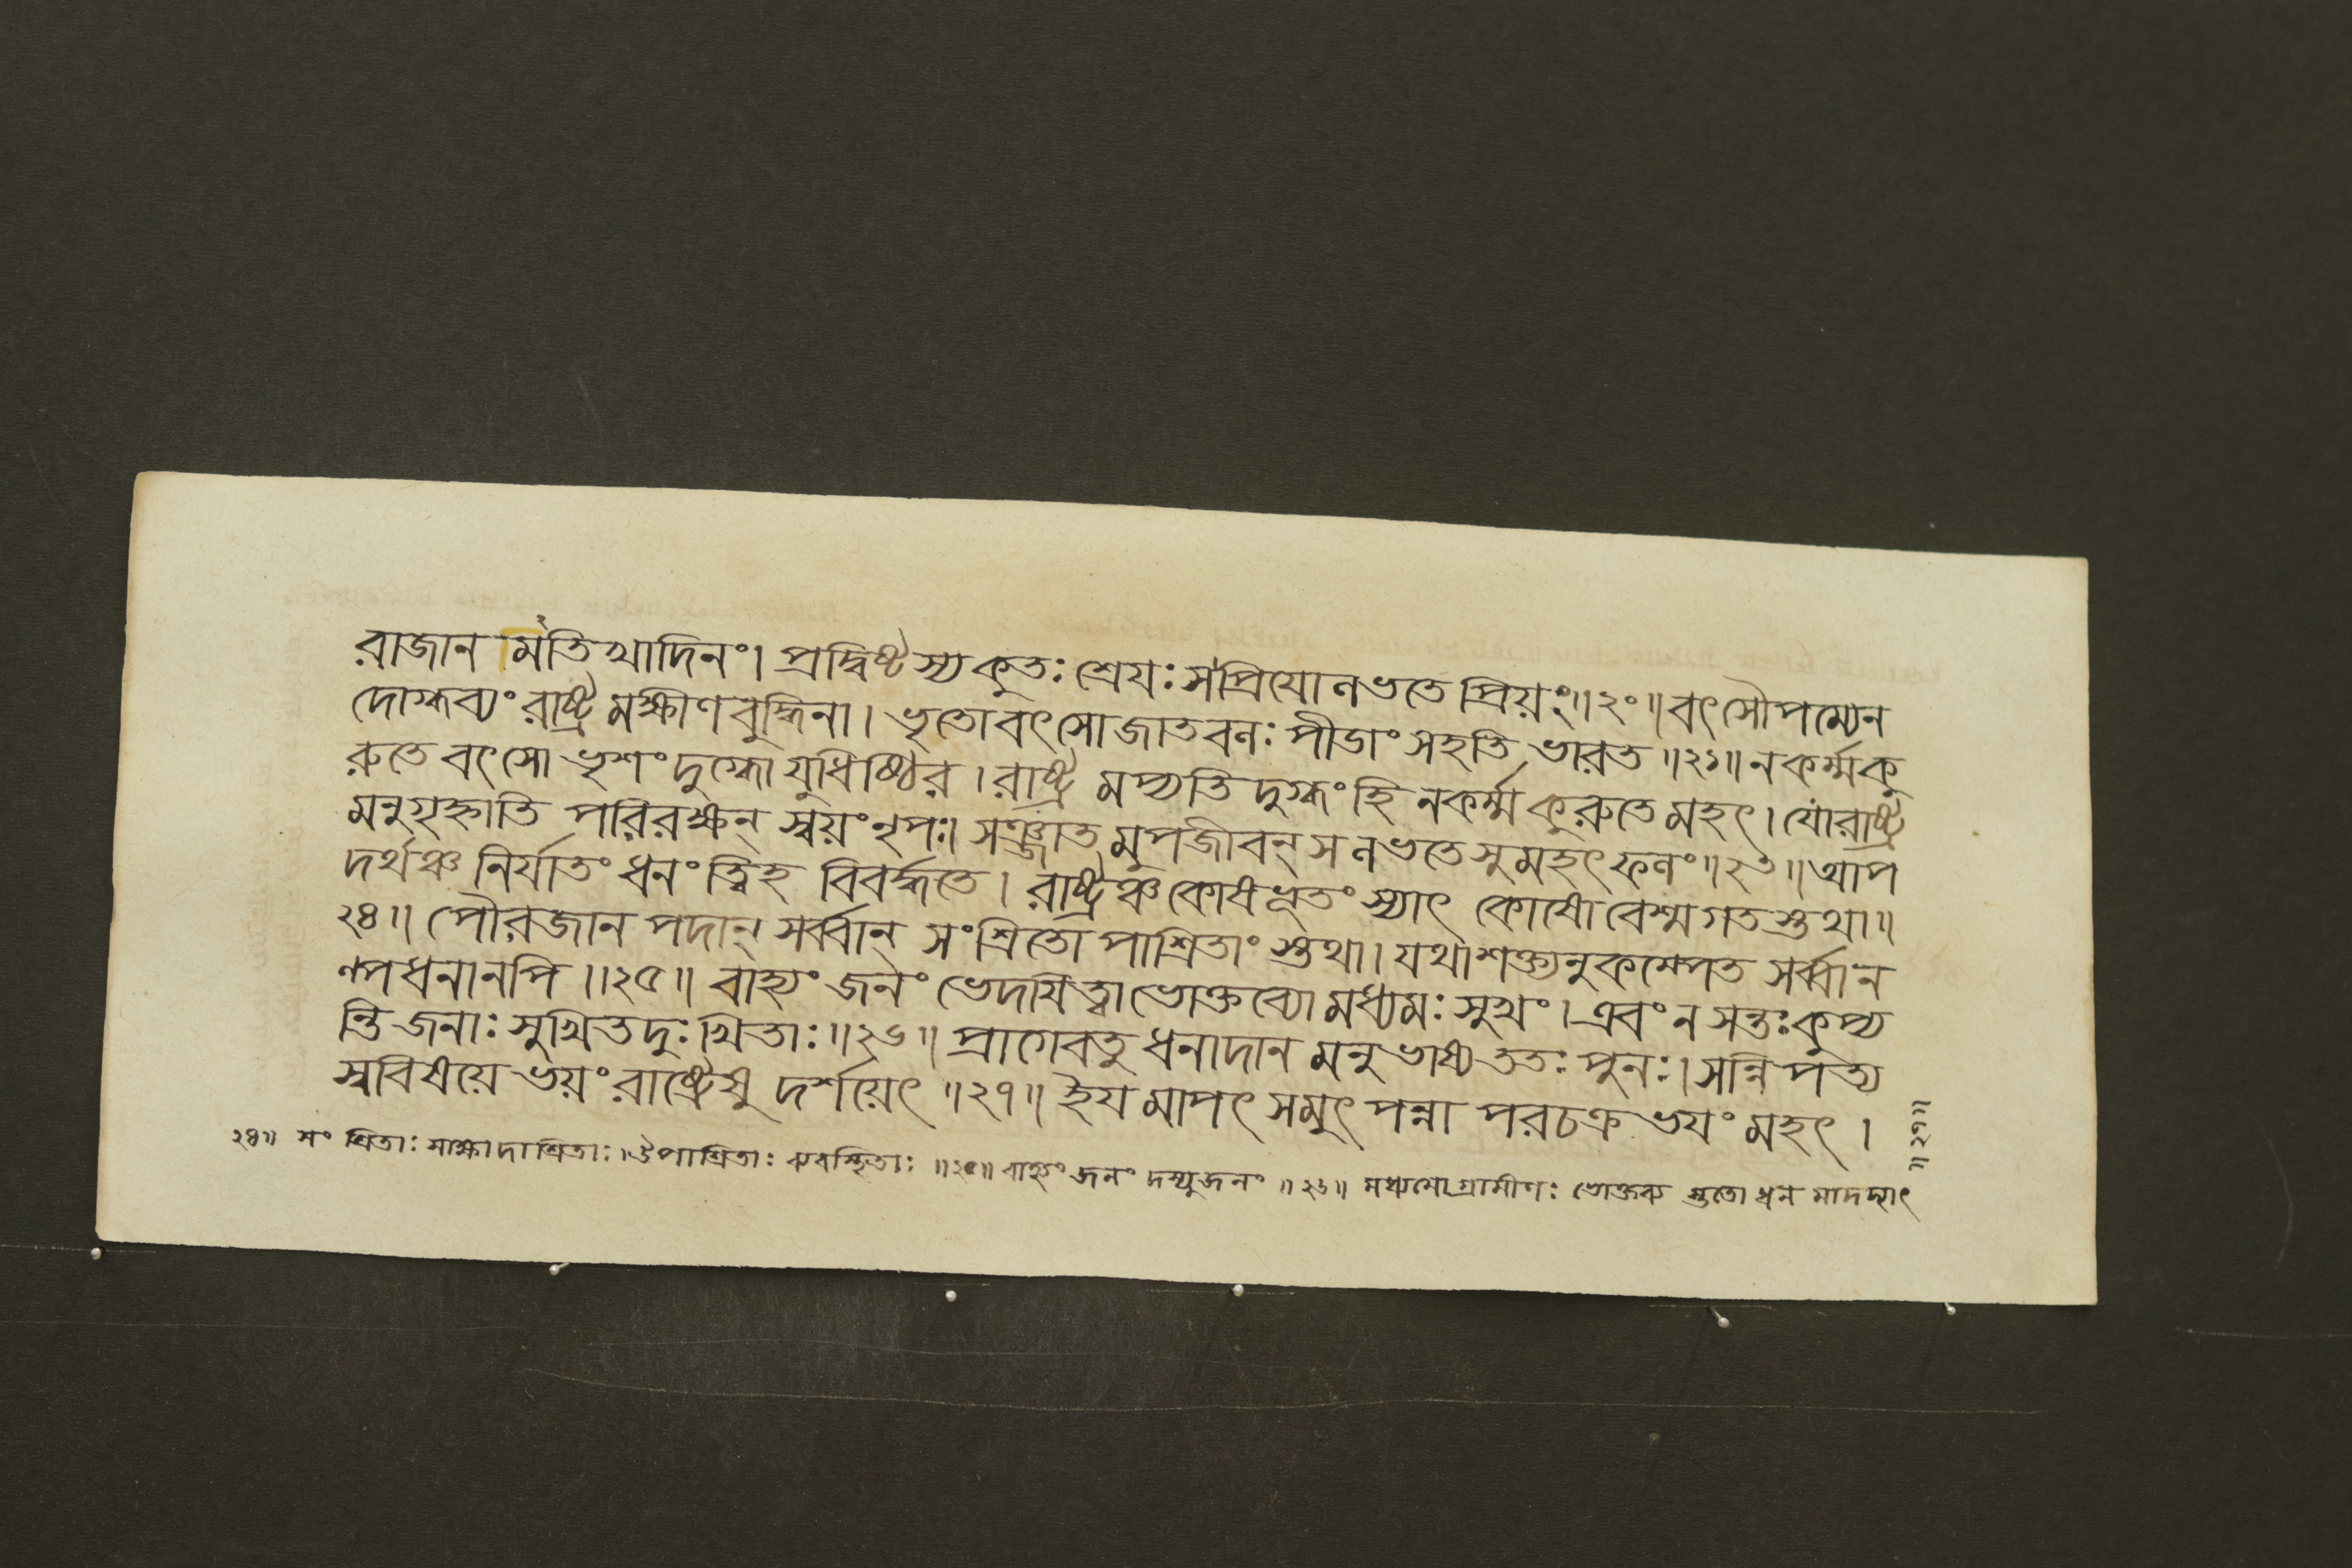 রাজান মতিখাদিনং। প্রদ্বিষ্টস্যকুতঃ শ্রেযঃ সংপ্রিযোনভতে প্রিয়ং॥২০॥ বৎসৌপম্যেন
দোগ্ধব্যং রাষ্ট্র মক্ষীণবুদ্ধিনা। ভৃতোবৎসোজাতবনঃ পীডাং সহতি ভারত॥২১॥ নকর্ম্মকু
রুতে বৎসো ভৃশং দুগ্ধো যুধিষ্ঠির। রাষ্ট্র মপ্যতি দুগ্ধং হি নকর্ম্ম কুরুতে মহৎ। যোরাষ্ট্র
মনুগৃহ্নাতি পরিরক্ষন্ স্বয়ং নৃপঃ। সঞ্জাত মুপজীবন্ স নভতে সুমহৎ ফনং॥২৩॥ আপ
দর্থঞ্চ নির্যাতং ধনং ত্বিহ বিবর্দ্ধতে। রাষ্ট্রঞ্চ কোষভূতং স্যাৎ কোষো বেশ্মগতস্তথা॥
২৪॥ পৌরজান পদান্ সর্ব্বান্ সংশ্রিতো পাশ্রিতাং স্তথা। যথাশক্ত্যনুকম্পেত সর্ব্বান
ণ্পধনানপি॥২৫॥ বাহ্যং জনং ভেদযিত্বা ভোক্তব্যো মধ্যমঃ সুখং। এবং ন সন্তঃ কুপ্য
ন্তি জনাঃ সুখিতদুঃখিতাঃ॥২৬॥ প্রাগেবতু ধনাদান মনুভাষ্য ততঃ পুনঃ। সন্নিপত্য
স্ববিষয়ে ভয়ং রাষ্ট্রেষু দর্শয়েৎ॥২৭॥ ইয মাপৎ সমুৎ পন্না পরচক্র ভযং মহৎ।
২৪॥ সং শ্রিতাঃ সাক্ষাদাশ্রিতাঃ। ঔপাশ্রিতাঃ ব্যবস্থিতাঃ॥২৫॥ বাহ্যং জনং দস্যুজনং॥২৬॥ মধ্যমোগ্রামীণঃ ভোক্তব্য স্ততো ধন মাদদ্যাৎ
॥২৭॥